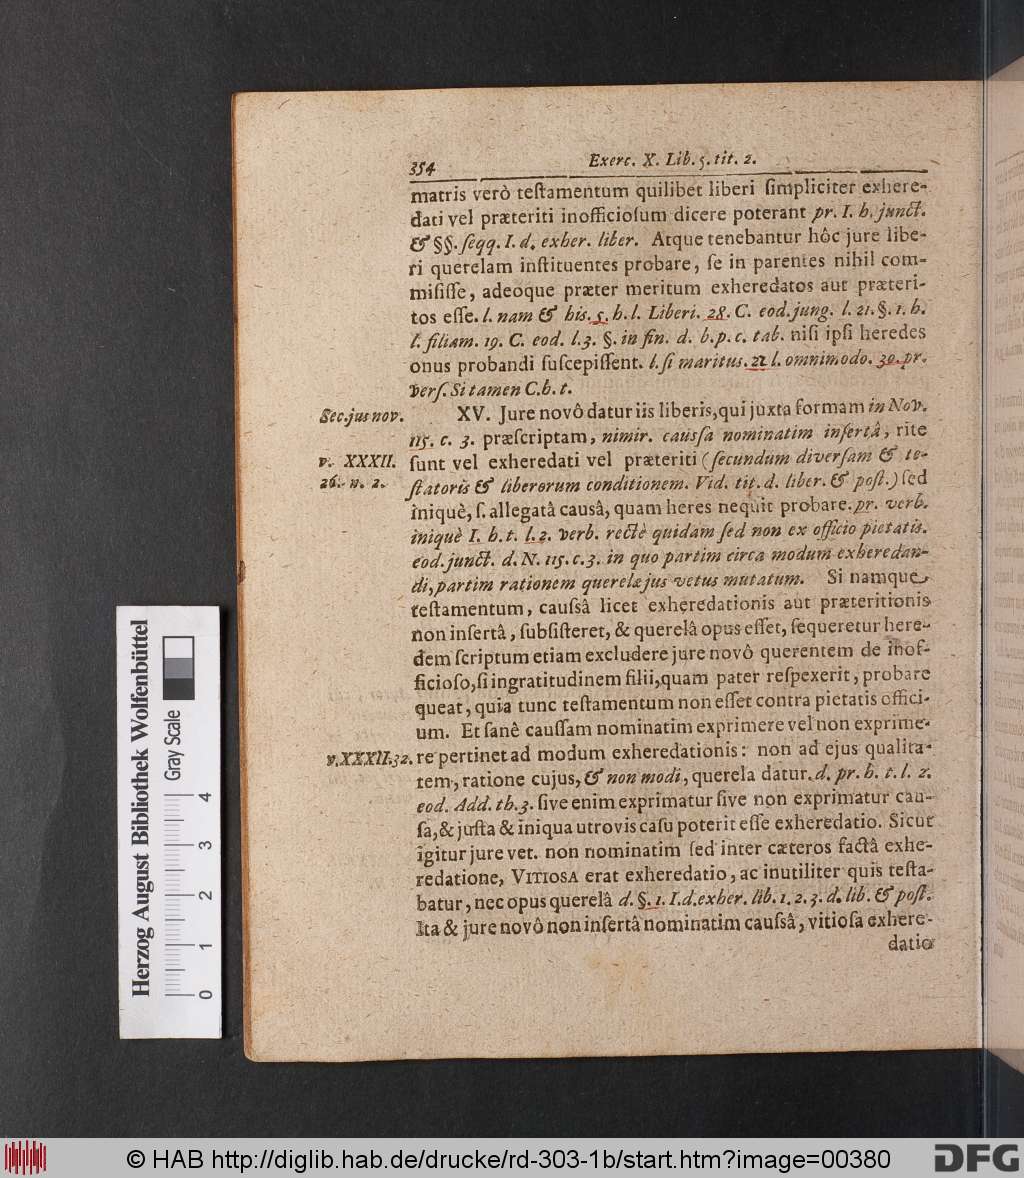 354
Exerc. X. Lib. 5. tit. 2.
matris verò teſtamentum quilibet liberi ſimpliciter exhere-
dati vel præteriti inofficioſum dicere poterant pr. I. h. junct.
& §§. ſeqq. I. d. exher. liber. Atque tenebantur hôc jure libe-
ri querelam inſtituentes probare, ſe in parentes nihil com-
miſiſſe, adeoque præter meritum exheredatos aut præteri-
tos eſſe. l. nam & his. 5. h. l. Liberi. 28. C. eod. jung. l. 21. §. 1. h.
l. filiam. 19. C. eod. l. 3. §. in fin. d. b. p. c. tab. niſi ipſi heredes
onus probandi ſuſcepiſſent. l. ſi maritus. 22 l. omnimodo. 30. pr.
verſ. Si tamen C. h. t.
Sec. jus nov.
XV. Jure novô datur iis liberis, qui juxta formam in Nov.
115. c. 3. præſcriptam, nimir. cauſſa nominatim inſertâ, rite
v. XXXII.
ſunt vel exheredati vel præteriti (ſecundum diverſam & te-
26. n. 2.
ſtatoris & liberorum conditionem. Vid. tit. d. liber. & poſt.) ſed
iniquè, ſ. allegatâ causâ, quam heres nequit probare. pr. verb.
iniquè I. h. t. l. 2. verb. rectè quidam ſed non ex officio pietatis.
eod. junct. d. N. 115. c. 3. in quo partim circa modum exheredan-
di, partim rationem querelæ jus vetus mutatum. Si namque
teſtamentum, cauſsâ licet exheredationis aut præteritionis
non inſertâ, ſubſiſteret, & querelâ opus eſſet, ſequeretur here-
dem ſcriptum etiam excludere jure novô querentem de inof-
ficioſo, ſi ingratitudinem filii, quam pater reſpexerit, probare
queat, quia tunc teſtamentum non eſſet contra pietatis offici-
um. Et ſanê cauſſam nominatim exprimere vel non exprime-
v. XXXII. 32.
re pertinet ad modum exheredationis: non ad ejus qualita-
tem, ratione cujus, & non modi, querela datur. d. pr. h. t. l. 2.
eod. Add. th. 3. ſive enim exprimatur ſive non exprimatur cau-
ſa, & juſta & iniqua utrovis caſu poterit eſſe exheredatio. Sicut
igitur jure vet. non nominatim ſed inter cæteros factâ exhe-
redatione, VITIOSA erat exheredatio, ac inutiliter quis teſta-
batur, nec opus querelâ d. §. 1. I. d. exher. lib. 1. 2. 3. d. lib. & poſt.
Ita & jure novô non inſertâ nominatim cauſsâ, vitioſa exhere-
datio
Herzog August Bibliothek Wolfenbüttel
Gray Scale
0 1 2 3 4
© HAB http://diglib.hab.de/drucke/rd-303-1b/start.htm?image=00380
DFG